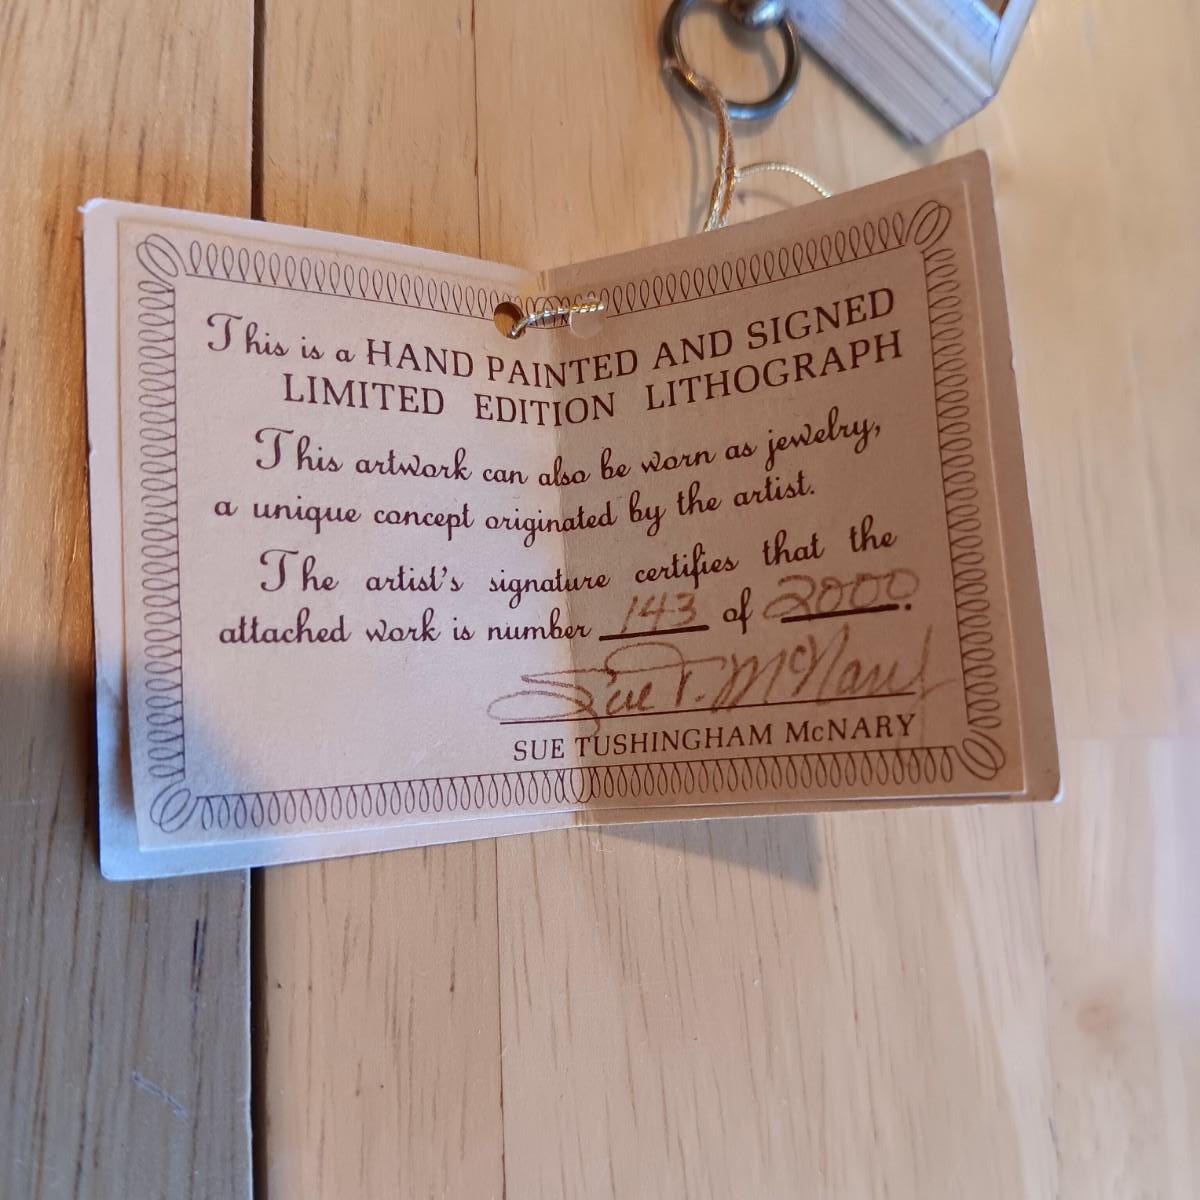 This is a HAND PAINTED AND SIGNED
LIMITED EDITION LITHOGRAPH
This artwork can also be worn as jewelry,
a unique concept originated by the artist.
The artist's signature certifies that the
attached work is number 143 of 2000.
Sue T. McNary
SUE TUSHINGHAM McNARY